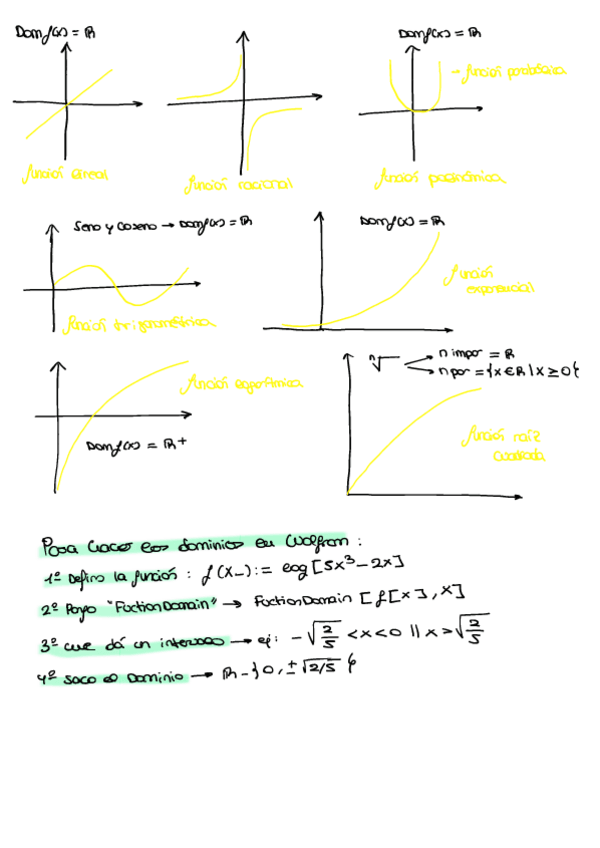 Dom f(x) = ℝ
función lineal
función racional
Dom f(x) = ℝ
- función parabólica
función polinómica
Seno y coseno → Dom f(x) = ℝ
función trigonométrica
Dom f(x) = ℝ
función
exponencial
función logarítmica
Dom f(x) = ℝ+
ⁿ√
n impar = ℝ
n par = {x ∈ ℝ | x ≥ 0}
función raíz
cuadrada
Para hacer los dominios en Wolfram :
1º Defino la función : f(x_) := log[5x³ - 2x]
2º Pongo "FuctionDomain" → FuctionDomain [f[x], x]
3º me dá un intervalo → ej: -√2/5 < x < 0 || x > √2/5
4º saco el Dominio → ℝ - {0, ±√2/5}